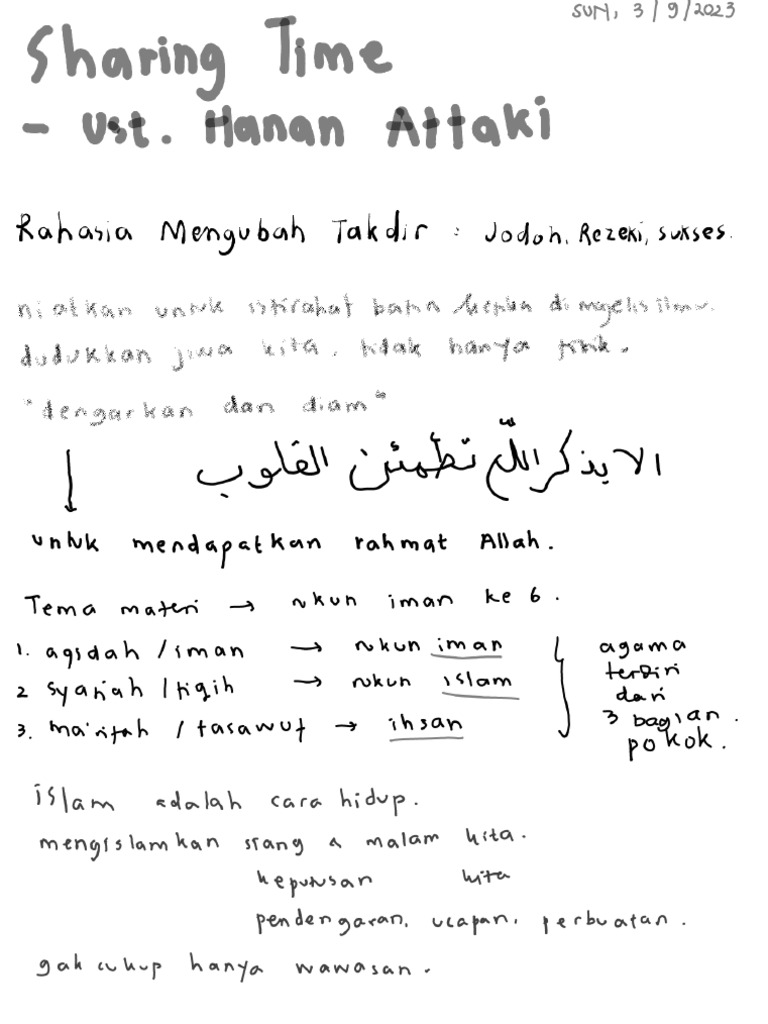 SUN, 3/9/2023
Sharing Time
- Ust. Hanan Attaki
Rahasia Mengubah Takdir : Jodoh, Rezeki, sukses.
niatkan untuk istirahat batin ketika di majelis ilmu.
dudukkan jiwa kita, tidak hanya fisik.
"dengarkan dan diam"
الا بذكر اللّٰه تطمئن القلوب
↓
untuk mendapatkan rahmat Allah.
Tema materi → rukun iman ke 6.
1. aqidah / iman → rukun iman
2 syariah / fiqih → rukun islam
3. ma'rifah / tasawuf → ihsan
agama
terdiri
dari
3 bagian.
pokok.
islam adalah cara hidup.
mengislamkan siang & malam kita.
keputusan kita
pendengaran, ucapan, perbuatan.
gak cukup hanya wawasan.